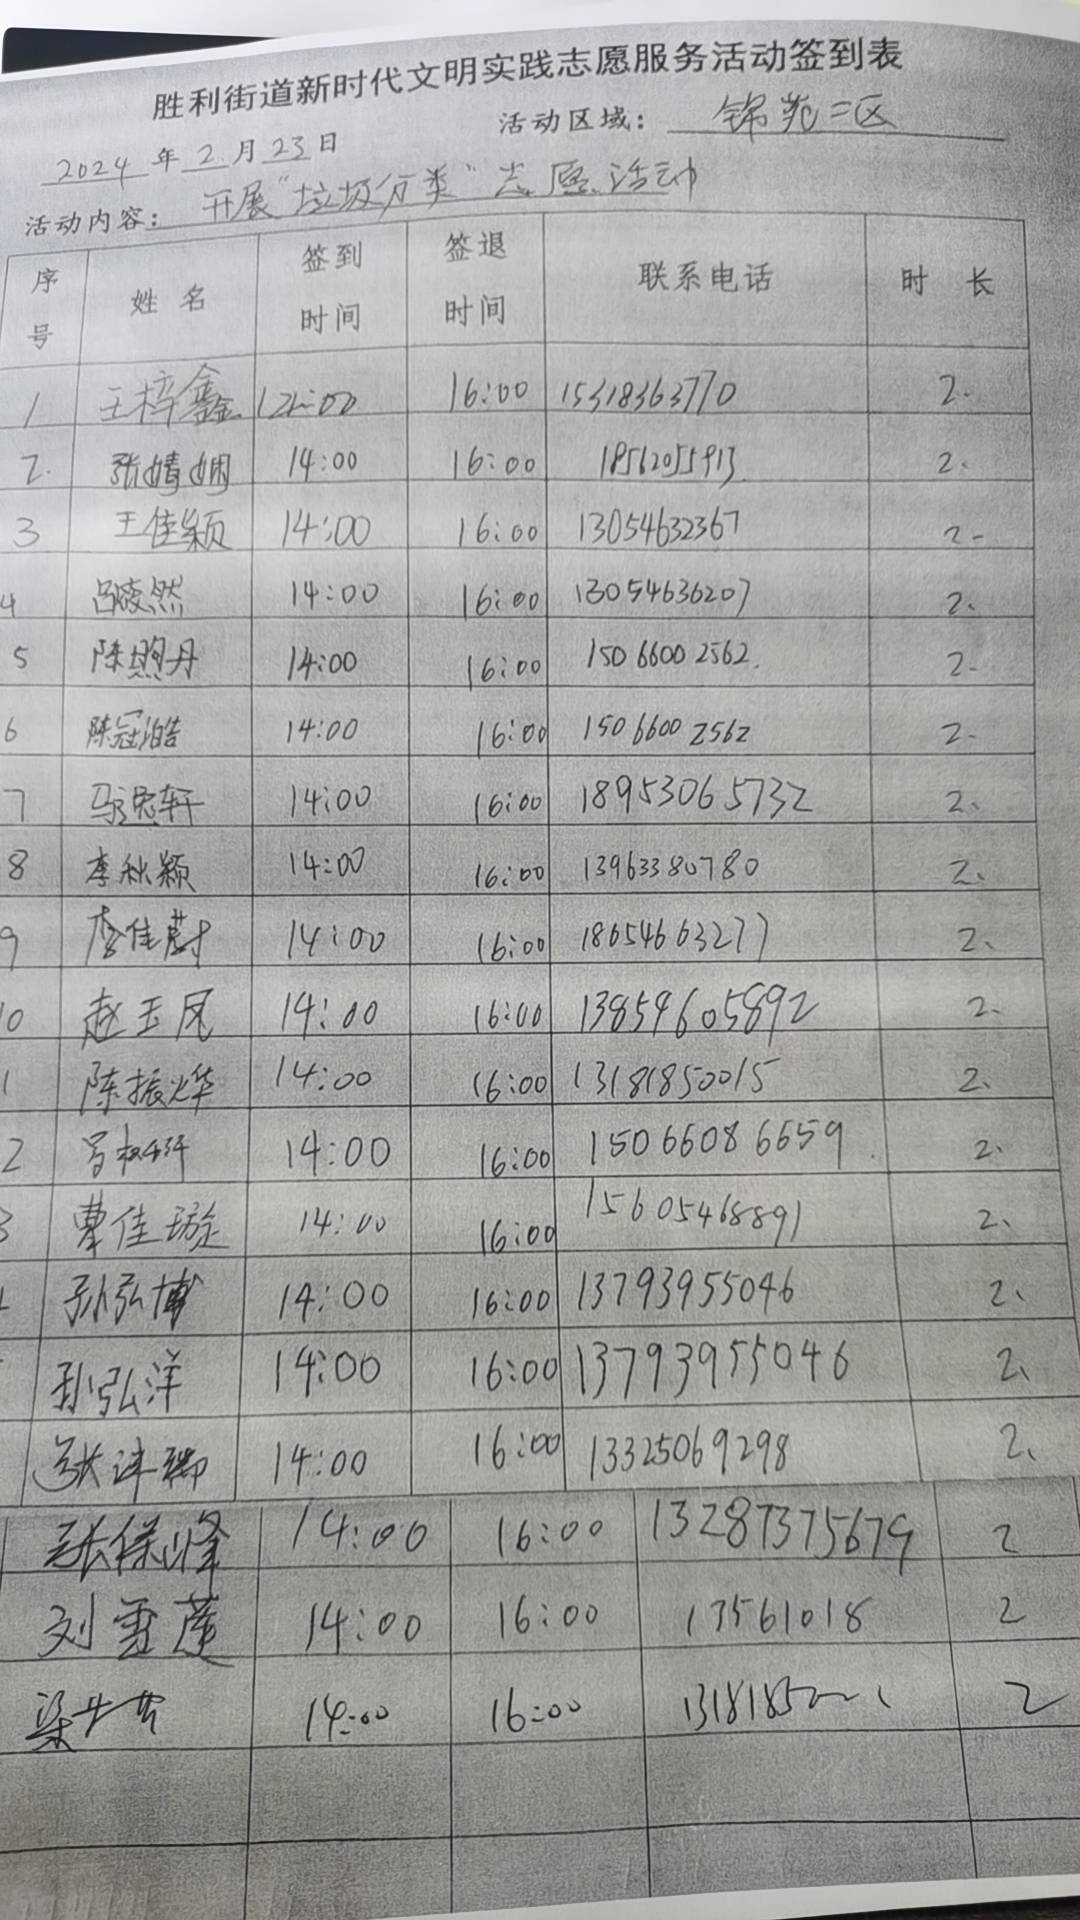 胜利街道新时代文明实践志愿服务活动签到表
2024年2月23日 活动区域：锦苑二区
活动内容：开展"垃圾分类"志愿活动
序号 姓名 签到时间 签退时间 联系电话 时长
1 王梓鑫 14:00 16:00 15318363770 2.
2. 张婧娴 14:00 16:00 18562055913 2.
3 王佳颖 14:00 16:00 13054632367 2-
4 吕凌然 14:00 16:00 13054636207 2.
5 陈煦丹 14:00 16:00 15066002562. 2.
6 陈冠皓 14:00 16:00 15066002562 2.
7 马 轩 14:00 16:00 18953065732 2.
8 李秋颖 14:00 16:00 13963380780 2.
9 李佳蔚 14:00 16:00 18654663277 2、
10 赵玉凤 14:00 16:00 13854605892 2.
1 陈振烨 14:00 16:00 13181850015 2、
2 14:00 16:00 15066086659 2、
3 曹佳璇 14:00 16:00 15605468891 2、
孙弘博 14:00 16:00 13793955046 2、
孙弘洋 14:00 16:00 13793955046 2、
张 瑞 14:00 16:00 13325069298 2、
张保峰 14:00 16:00 13287375679 2
刘雪莲 14:00 16:00 13561018 2
梁 14:00 16:00 2